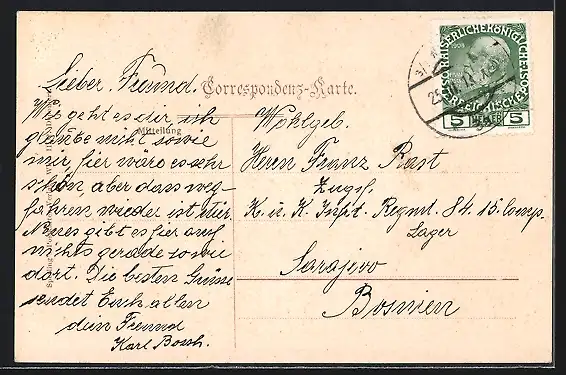 Correspondenz-Karte.
Mittheilung
Lieber Freund.
Wie geht es dir, ich
glaube nicht sowie
mir, hier wäre es sehr
schön aber dass weg-
fahren wieder ist
Neues gibt es hier auch
nichts gerade sowie
dort. Die besten Grüsse
sendet Euch allen
dein Freund
Karl Bosch.
Wohlgeb.
Herrn Franz Rast
Zugsf.
K. u. K. Inft. Regmt. 84. 15. Comp.
Lager
Sarajevo
Bosnien
KAISERLICHE KÖNIGLICHE
1908
ÖSTERREICHISCHE
5 HELLER 5